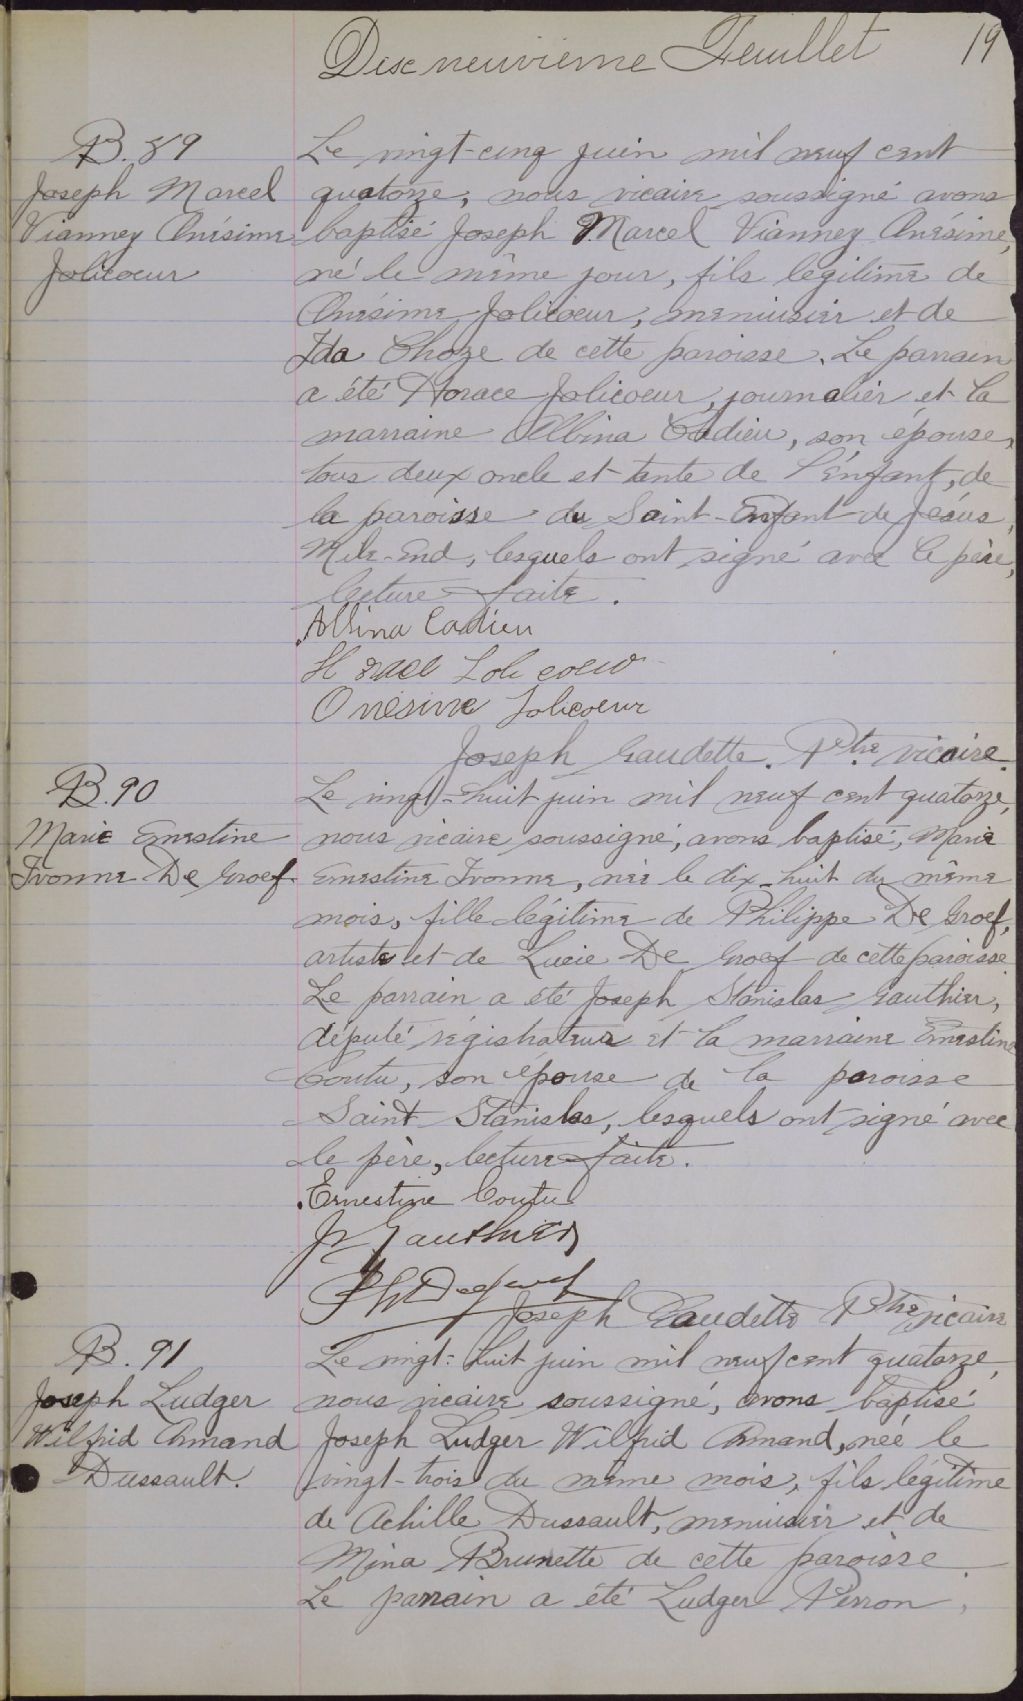 Dixneuvième Feuillet 19
B. 89
Joseph Marcel
Vianney Onésime
Jolicoeur
Le vingt-cinq juin mil neuf cent
quatorze, nous vicaire soussigné avons
baptisé Joseph Marcel Vianney Onésime,
né le même jour, fils légitime de
Onésime Jolicoeur, menuisier et de
Ida Choze de cette paroisse. Le parrain
a été Horace Jolicoeur, journalier et la
marraine Albina Cadieu, son épouse,
tous deux oncle et tante de l'enfant, de
la paroisse du Saint-Enfant-de Jésus,
Mile-End, lesquels ont signé avec le père,
lecture faite.
Albina Cadieu
Horace Jolicoeur
Onésime Jolicoeur
Joseph Gaudette. Ptre vicaire.
B. 90
Marie Ernestine
Ivonne De Groef
Le vingt-huit juin mil neuf cent quatorze,
nous vicaire soussigné, avons baptisé, Marie
Ernestine Ivonne, née le dix-huit du même
mois, fille légitime de Philippe De Groef,
artiste et de Lucie De Groef de cette paroisse
Le parrain a été Joseph Stanislas Gauthier,
député régistrateur et la marraine Ernestine
Coutu, son épouse de la paroisse
Saint Stanislas, lesquels ont signé avec
le père, lecture faite.
Ernestine Coutu
Js Gauthier
Joseph Gaudette Ptre vicaire
B. 91
Joseph Ludger
Wilfrid Armand
Dussault.
Le vingt-huit juin mil neuf cent quatorze,
nous vicaire soussigné, avons baptisé
Joseph Ludger Wilfrid Armand, née le
vingt-trois du même mois, fils légitime
de Achille Dussault, menuisier et de
Mina Brunette de cette paroisse.
Le parrain a été Ludger Perron,